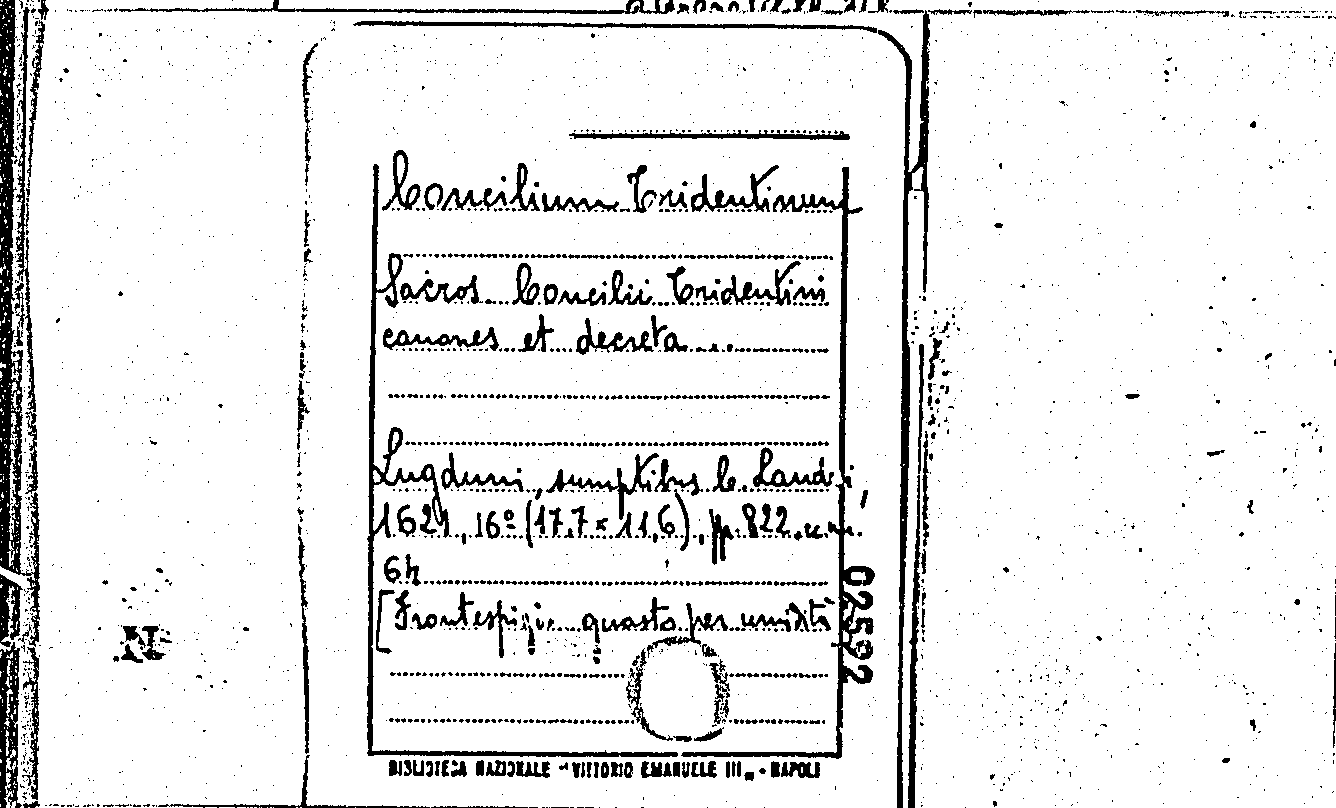 Concilium Tridentinum
Sacros. Concilii Tridentini
canones et decreta...
Lugduni, sumptibus C. Landri,
1621, 16° (17,7 x 11,6), pp. 822. n. n.
64
[Frontespizio guasto per umidità
02592
N
BIBLIOTECA NAZIONALE "VITTORIO EMANUELE III" - NAPOLI